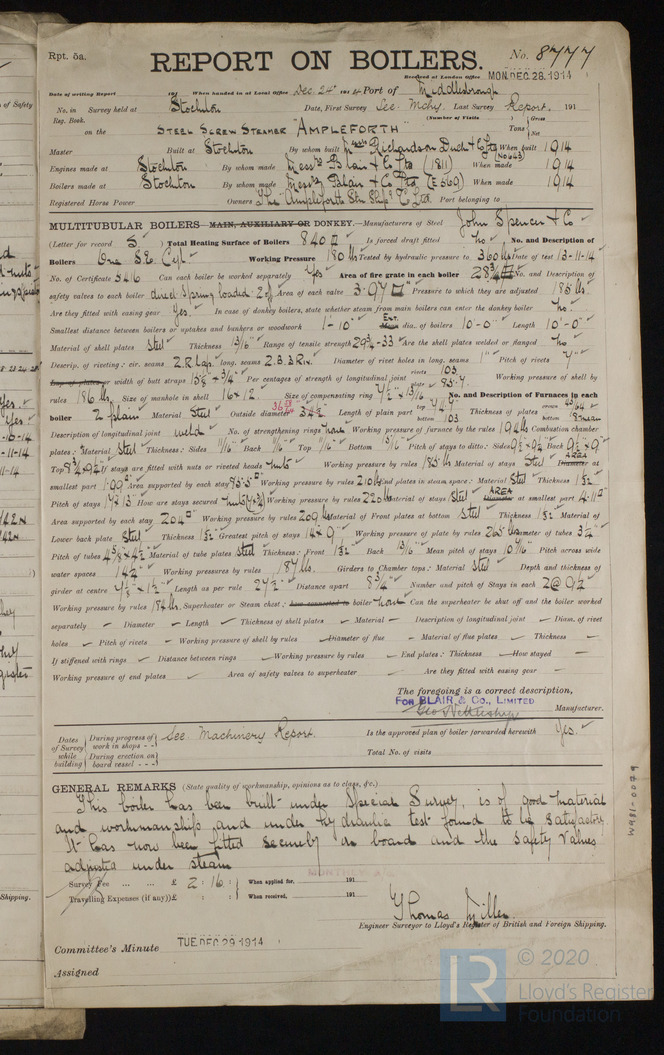 Rpt. 5a.
REPORT ON BOILERS.
No. 8777
Received at London Office MON. DEC. 28. 1914
Date of writing Report 191 When handed in at Local Office Dec 24th 1914 Port of Middlesbrough
No. in Survey held at Stockton Date, First Survey See Mchy. Last Survey Report. 191
Reg. Book. (Number of Visits) Gross
on the STEEL SCREW STEAMER "AMPLEFORTH" Tons Net
Master Built at Stockton By whom built Messrs Richardson Duck & Co Ltd (No 643) When built 1914
Engines made at Stockton By whom made Messrs Blair & Co Ltd (1811) When made 1914
Boilers made at Stockton By whom made Messrs Blair & Co Ltd (E560) When made 1914
Registered Horse Power Owners The Ampleforth Stm Ship Co Ltd Port belonging to
MULTITUBULAR BOILERS MAIN, AUXILIARY OR DONKEY.—Manufacturers of Steel John Spencer & Co
(Letter for record S) Total Heating Surface of Boilers 840 □ Is forced draft fitted no. No. and Description of
Boilers One S.E. Cyl. Working Pressure 180 lbs Tested by hydraulic pressure to 360 lbs Date of test 13-11-14
No. of Certificate 5416 Can each boiler be worked separately Yes Area of fire grate in each boiler 28 3/4 □ No. and Description of
safety valves to each boiler direct Spring loaded 2 of Area of each valve 3.97 □" Pressure to which they are adjusted 185 lbs
Are they fitted with easing gear Yes. In case of donkey boilers, state whether steam from main boilers can enter the donkey boiler no.
Smallest distance between boilers or uptakes and bunkers or woodwork 1'-10" Ext. Mean dia. of boilers 10'-0" Length 10'-0"
Material of shell plates Steel Thickness 13/16" Range of tensile strength 29 3/4-33 Are the shell plates welded or flanged no
Descrip. of riveting: cir. seams 2.R. Lap. long. seams 2.B.S Riv. Diameter of rivet holes in long. seams 1" Pitch of rivets 7"
Lap of plates or width of butt straps 15 5/8 x 3/4" Per centages of strength of longitudinal joint rivets 103. plate 85.7. Working pressure of shell by
rules 186 lbs. Size of manhole in shell 16"x12" Size of compensating ring 7 1/2 x 13/16 No. and Description of Furnaces in each
boiler 2 plain Material Steel Outside diameter 34 1/2 Length of plain part top bottom Thickness of plates crown bottom
Description of longitudinal joint weld No. of strengthening rings none Working pressure of furnace by the rules 194 lbs Combustion chamber
plates: Material Steel Thickness: Sides 11/16 Back 11/16 Top 11/16 Bottom 13/16 Pitch of stays to ditto: Sides 9 1/2 x 9 1/2 Back 9 1/2 x 9"
Top 8 3/4 x 9 1/2 If stays are fitted with nuts or riveted heads nuts Working pressure by rules 185 lbs Material of stays Steel AREA Diameter at
smallest part 1.99 □" Area supported by each stay 85.5 □" Working pressure by rules 210 lbs End plates in steam space: Material Steel Thickness 1 5/32
Pitch of stays 17 x 13 How are stays secured nuts Working pressure by rules 220 lbs Material of stays Steel AREA Diameter at smallest part 4.11 □"
Area supported by each stay 204 □" Working pressure by rules 209 lbs Material of Front plates at bottom Steel Thickness 1 5/32 Material of
Lower back plate Steel Thickness 1 5/32 Greatest pitch of stays 14 x 9 Working pressure of plate by rules 265 lbs Diameter of tubes 3 1/4
Pitch of tubes 4 5/8 x 4 1/2 Material of tube plates Steel Thickness: Front 1 5/32 Back 13/16 Mean pitch of stays 10 7/16 Pitch across wide
water spaces 14 1/4 Working pressures by rules 187 lbs. Girders to Chamber tops: Material Steel Depth and thickness of
girder at centre 7 1/2 x 1 1/2 Length as per rule 27 1/2 Distance apart 8 3/4" Number and pitch of Stays in each 2 @ 9 1/2
Working pressure by rules 184 lbs. Superheater or Steam chest: how connected to boiler none Can the superheater be shut off and the boiler worked
separately — Diameter — Length Thickness of shell plates — Material — Description of longitudinal joint — Diam. of rivet
holes — Pitch of rivets — Working pressure of shell by rules — Diameter of flue — Material of flue plates — Thickness —
If stiffened with rings — Distance between rings — Working pressure by rules — End plates: Thickness — How stayed —
Working pressure of end plates — Area of safety valves to superheater — Are they fitted with easing gear —
The foregoing is a correct description,
FOR BLAIR & Co., LIMITED
Manufacturer.
Dates of Survey while building During progress of work in shops - - See Machinery Report. Is the approved plan of boiler forwarded herewith Yes.
During erection on board vessel - - - Total No. of visits
GENERAL REMARKS (State quality of workmanship, opinions as to class, &c.)
This boiler has been built under Special Survey, is of good material
and workmanship and under hydraulic test found to be satisfactory
It has now been fitted securely on board and the safety valves
adjusted under steam
Survey Fee ... ... £ 2 : 16 : When applied for, 191
Travelling Expenses (if any) £ : : When received, 191
Thomas Miller.
Engineer Surveyor to Lloyd's Register of British and Foreign Shipping.
Committee's Minute TUE. DEC. 29. 1914
Assigned
W981-0079
LR © 2020
Lloyd's Register
Foundation